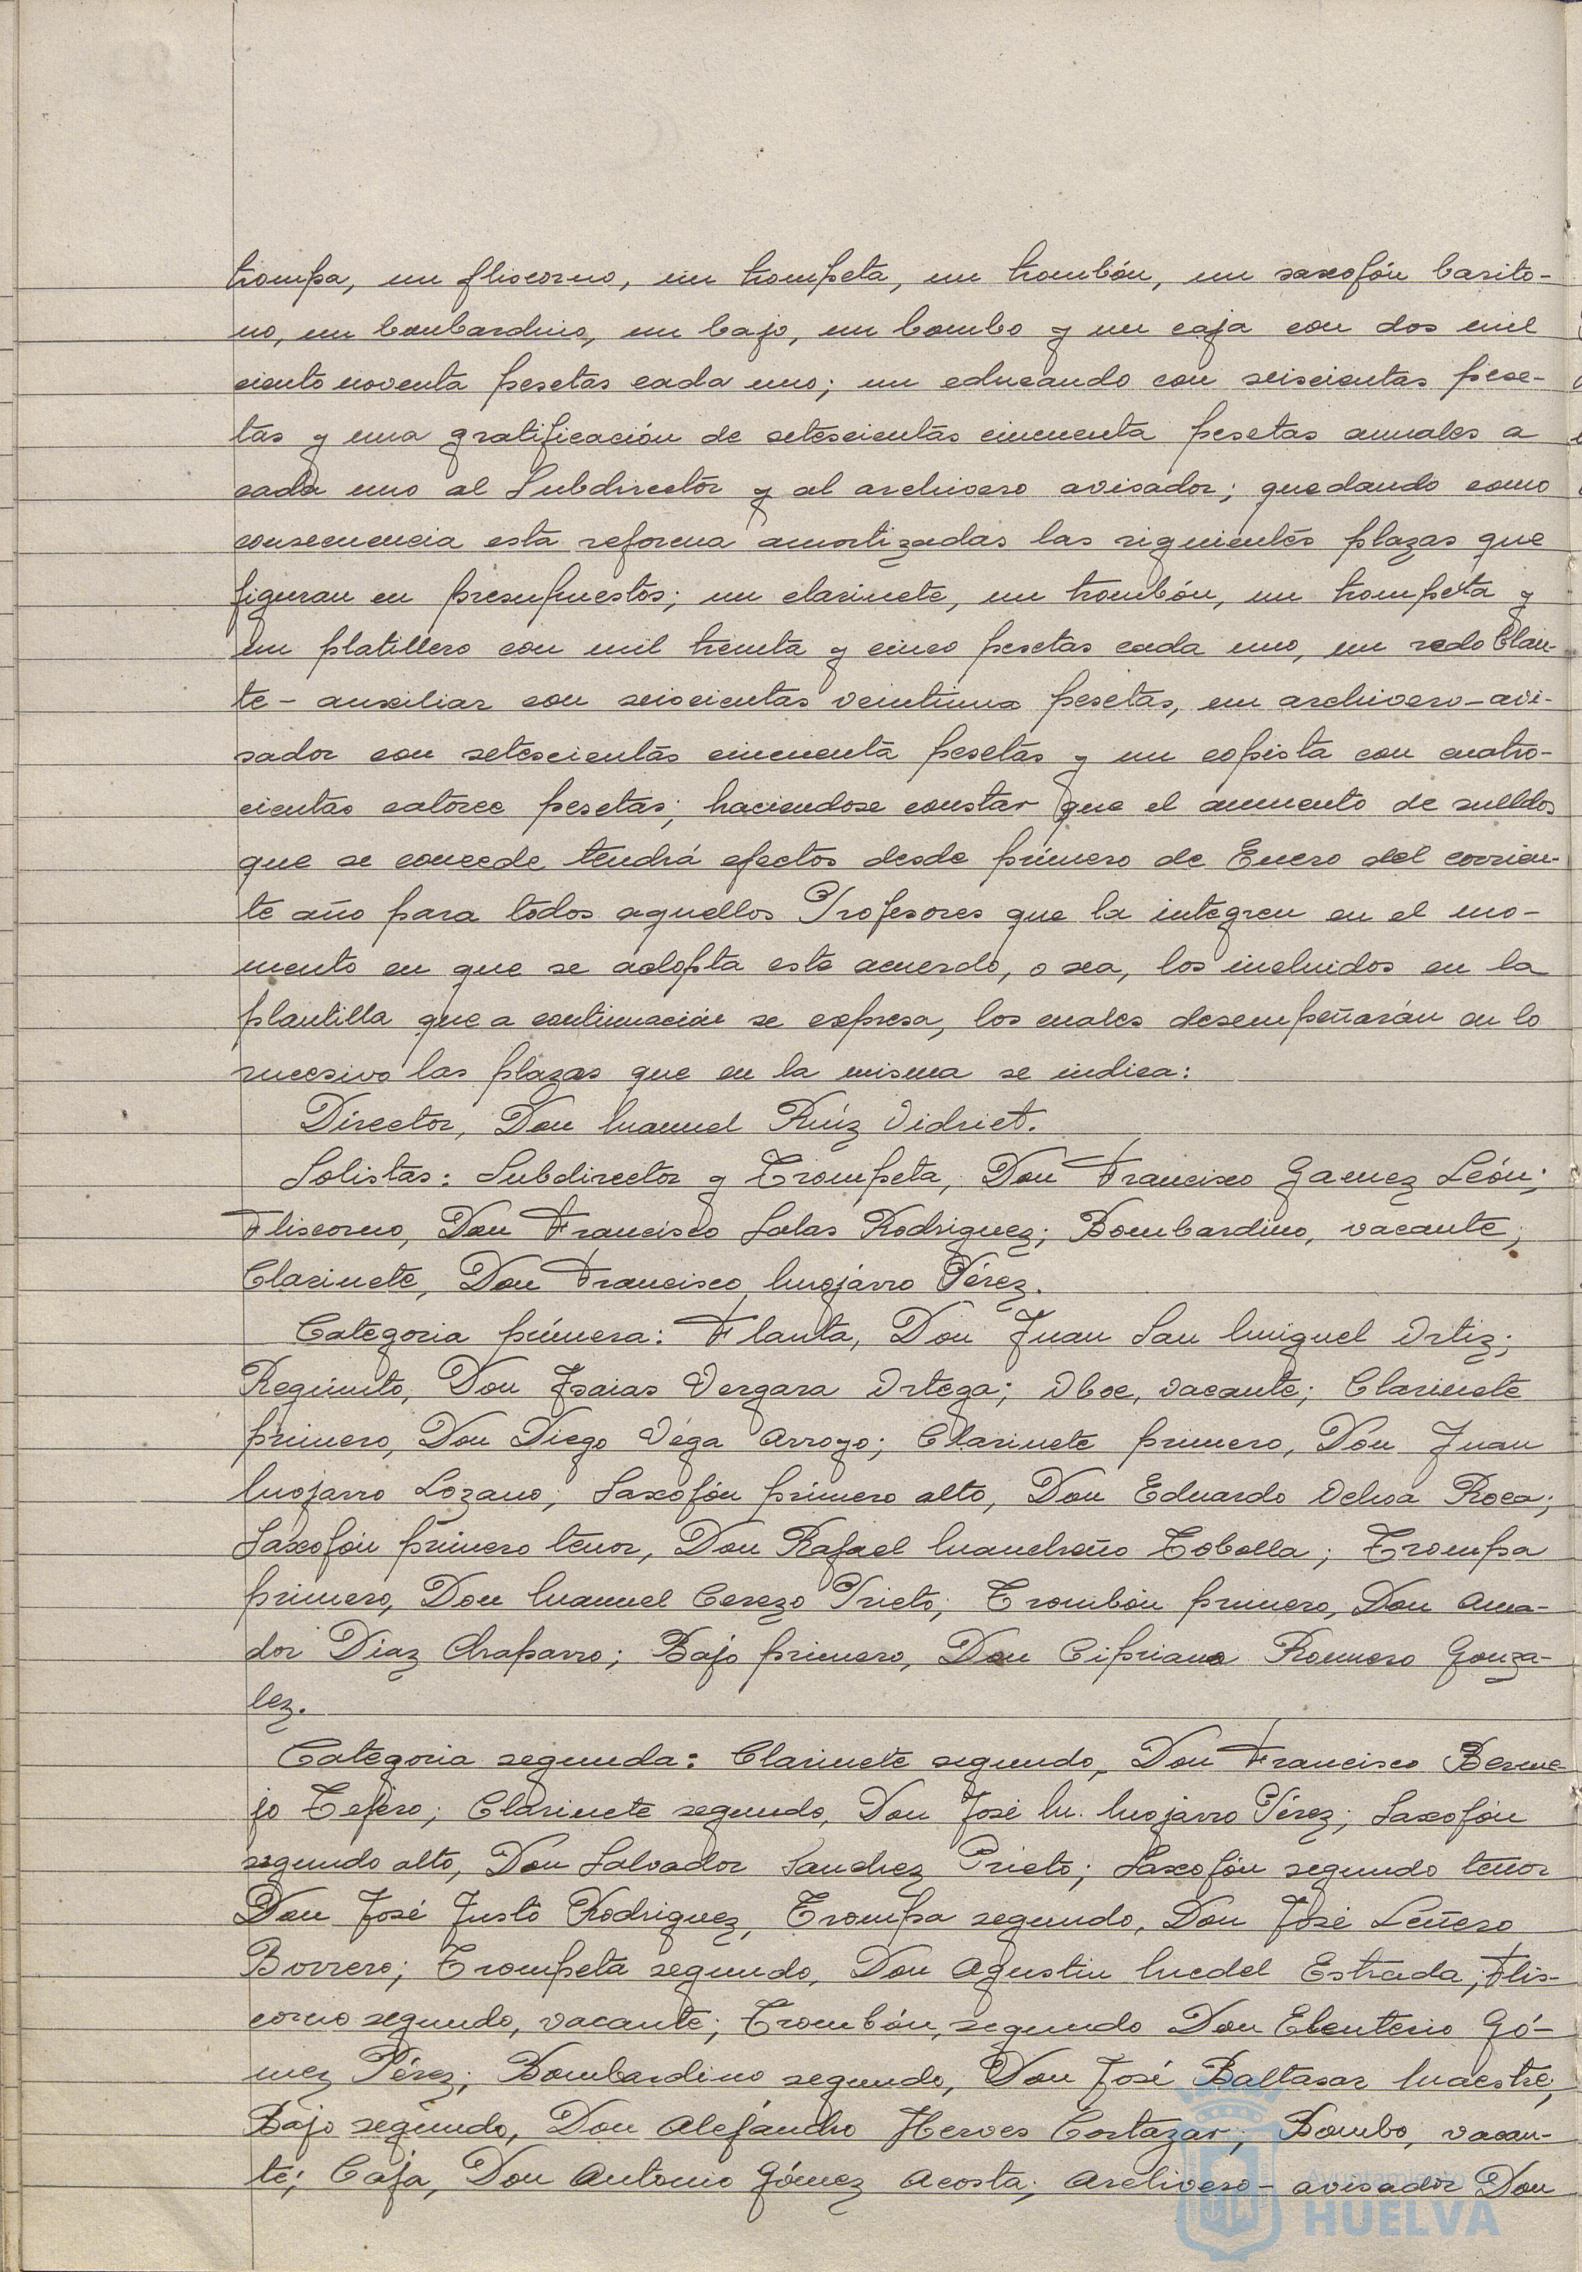 trompa, un fliscorno, un trompeta, un trombón, un saxofón barito-
no, un bombardino, un bajo, un bombo y un caja con dos mil
ciento noventa pesetas cada uno; un educando con seiscientas pese-
tas y una gratificación de setescientas cincuenta pesetas anuales a
cada uno al Subdirector y al archivero avisador; quedando como
consecuencia esta reforma amortizadas las siguientes plazas que
figuran en presupuestos; un clarinete, un trombón, un trompeta y
un platillero con mil treinta y cinco pesetas cada uno, un redoblan-
te - auxiliar con seiscientas veintiuna pesetas, un archivero-avi-
sador con setescientas cincuenta pesetas y un copista con cuatro-
cientas catorce pesetas; haciendose constar que el aumento de sueldos
que se concede tendrá efectos desde primero de Enero del corrien-
te año para todos aquellos Profesores que la integren en el mo-
mento en que se adopta este acuerdo, o sea, los incluidos en la
plantilla que a continuación se expresa, los cuales desempeñarán en lo
sucesivo las plazas que en la misma se indica:
Director, Don Manuel Ruíz Vidriet.
Solistas: Subdirector y Trompeta, Don Francisco Gamez León;
Fliscorno, Don Francisco Salas Rodriguez; Bombardino, vacante;
Clarinete, Don Francisco Mojarro Pérez.
Categoria primera: Flauta, Don Juan San Miguel Ortiz;
Requinto, Don Isaias Vergara Ortega; Oboe, vacante; Clarinete
primero, Don Diego Vega Arroyo; Clarinete primero, Don Juan
Mojarro Lozano; Saxofón primero alto, Don Eduardo Ochoa Roca;
Saxofón primero tenor, Don Rafael Mancheño Tobella; Trompa
primero, Don Manuel Cerezo Prieto; Trombón primero, Don Ama-
dor Diaz Chaparro; Bajo primero, Don Cipriano Romero Gonza-
lez.
Categoria segunda: Clarinete segundo, Don Francisco Berme
jo Tejero; Clarinete segundo, Don José M. Mojarro Pérez; Saxofón
segundo alto, Don Salvador Sanchez Prieto; Saxofón segundo tenor
Don José Justo Rodriguez, Trompa segundo, Don José Leñero
Borrero; Trompeta segundo, Don Agustin Medel Estrada; Flis-
corno segundo, vacante; Trombón, segundo Don Eleuterio Gó-
mez Pérez; Bombardino segundo, Don José Baltasar Maestre;
Bajo segundo, Don Alejandro Herves Cortazar; Bombo, vacan-
te; Caja, Don Antonio Gómez Acosta; Archivero - avisador Don
Ayuntamiento
HUELVA